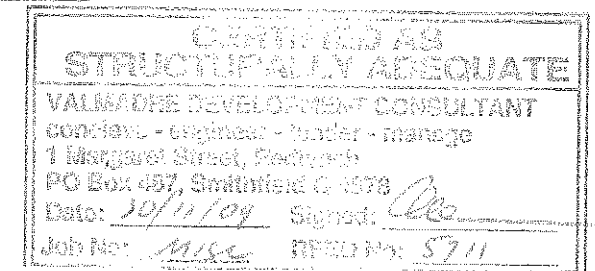 CERTIFIED AS
STRUCTURALLY ADEQUATE
VALMADRE DEVELOPMENT CONSULTANT
- engineer - - manage
1 Margaret Street,
PO Box 487, Smithfield Q 4878
Date: 10/11/09 Signed:
Job No: MISC RPEQ No: 5711